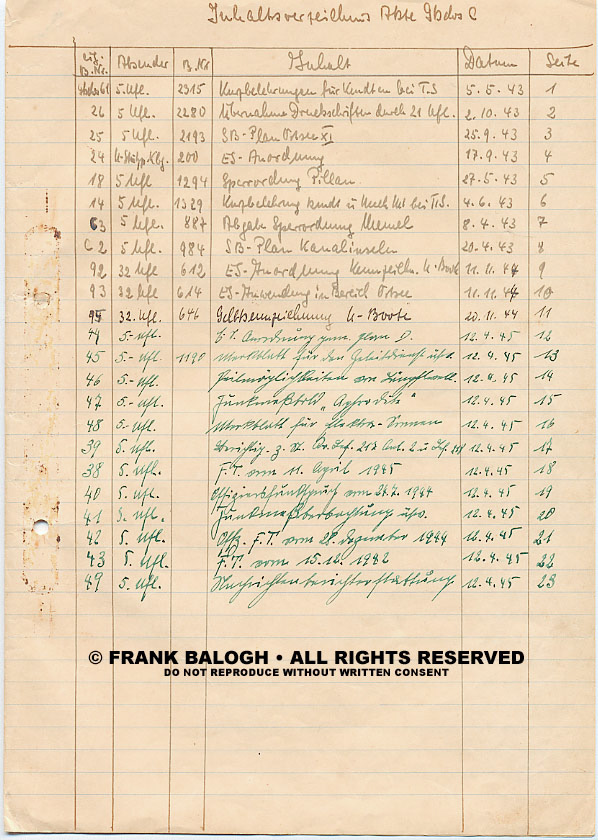 Inhaltsverzeichnis Akte Gkdos C
Lfg. B.Nr. Absender B.Nr Inhalt Datum Seite
5. Ufl. 2515 Kurzbelehrungen für Kmdten bei T.S 5.5.43 1
26 5 Ufl. 2280 Übernahme Druckschriften durch 21 Ufl. 2.10.43 2
25 5 Ufl. 2193 SB-Plan Ostsee XI 25.9.43 3
24 200 ES-Anordnung 17.9.43 4
18 5 Ufl 1294 Sperrordnung Pillau 27.5.43 5
14 5 Ufl. 1329 Kurzbelehrung Kmdt u bei T.S. 4.6.43 6
63 5 Ufl. 887 Abgabe Sperrordnung Memel 8.4.43 7
C 2 5 Ufl. 984 SB-Plan Kanalinseln 20.4.43 8
92 32 Ufl 612 ES-Anordnung Kennzeichn. U-Boote 11.11.44 9
93 32 Ufl 614 ES-Anwendung in Bereich Ostsee 11.11.44 10
95 32. Ufl. 646 Gelbkennzeichnung U-Boote 20.11.44 11
44 5.-Ufl. Anordnung gem. D. 12.4.45 12
45 5.-Ufl. 1190 Merkblatt für den Geleitdienst usw. 12.4.45 13
46 5.-Ufl. Peilmöglichkeiten von 12.4.45 14
47 5.-Ufl. Funkmeßbold „Aphrodite" 12.4.45 15
48 5.-Ufl. Merkblatt für Elektra-Sonnen 12.4.45 16
39 5.-Ufl. Berichtig. z. St. 12.4.45 17
38 5. Ufl. F.T. vom 11. April 1945 12.4.45 18
40 5. Ufl. Offiziersfunkspruch vom 1944 12.4.45 19
41 5. Ufl. Funkmeßbeobachtung usw. 12.4.45 20
42 5. Ufl. Offz. F.T. vom 28. Dezember 1944 12.4.45 21
43 5. Ufl. F.T. vom 15.12.1942 12.4.45 22
49 5. Ufl. Nachrichtenberichterstattung 12.4.45 23
© FRANK BALOGH • ALL RIGHTS RESERVED
DO NOT REPRODUCE WITHOUT WRITTEN CONSENT